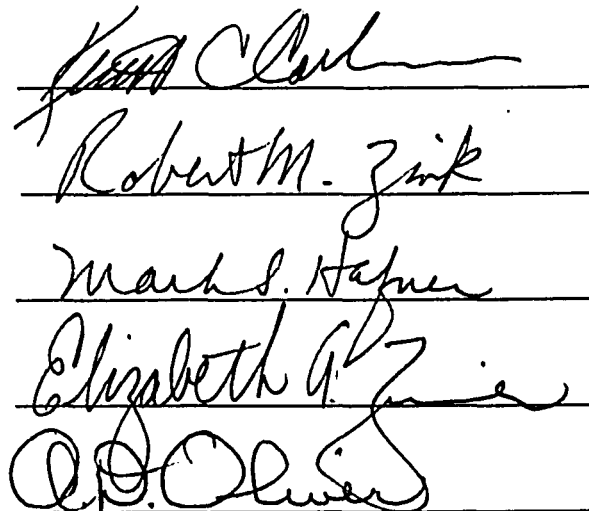 Robert M. Zink
Mark S. Hafner
Elizabeth A. Zimmer
A. D. Oliver